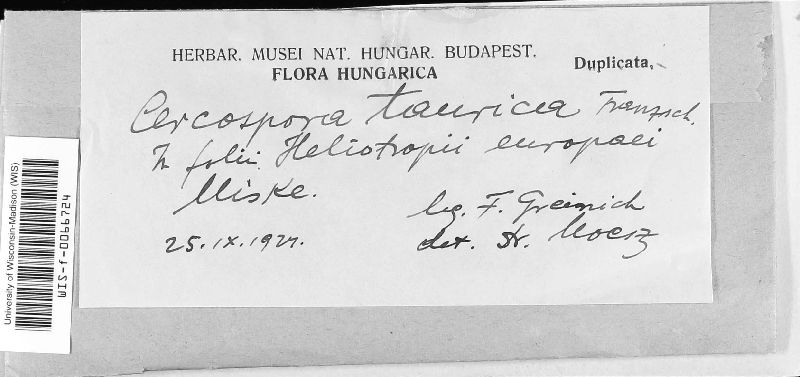 HERBAR. MUSEI NAT. HUNGAR. BUDAPEST.
FLORA HUNGARICA
Duplicata.
Cercospora taurica Tranzsch.
In folii. Heliotropii europaei
Miske.
leg. F. Greinich
25.IX.192
det. Moesz
University of Wisconsin-Madison (WIS)
WIS-f-0066724